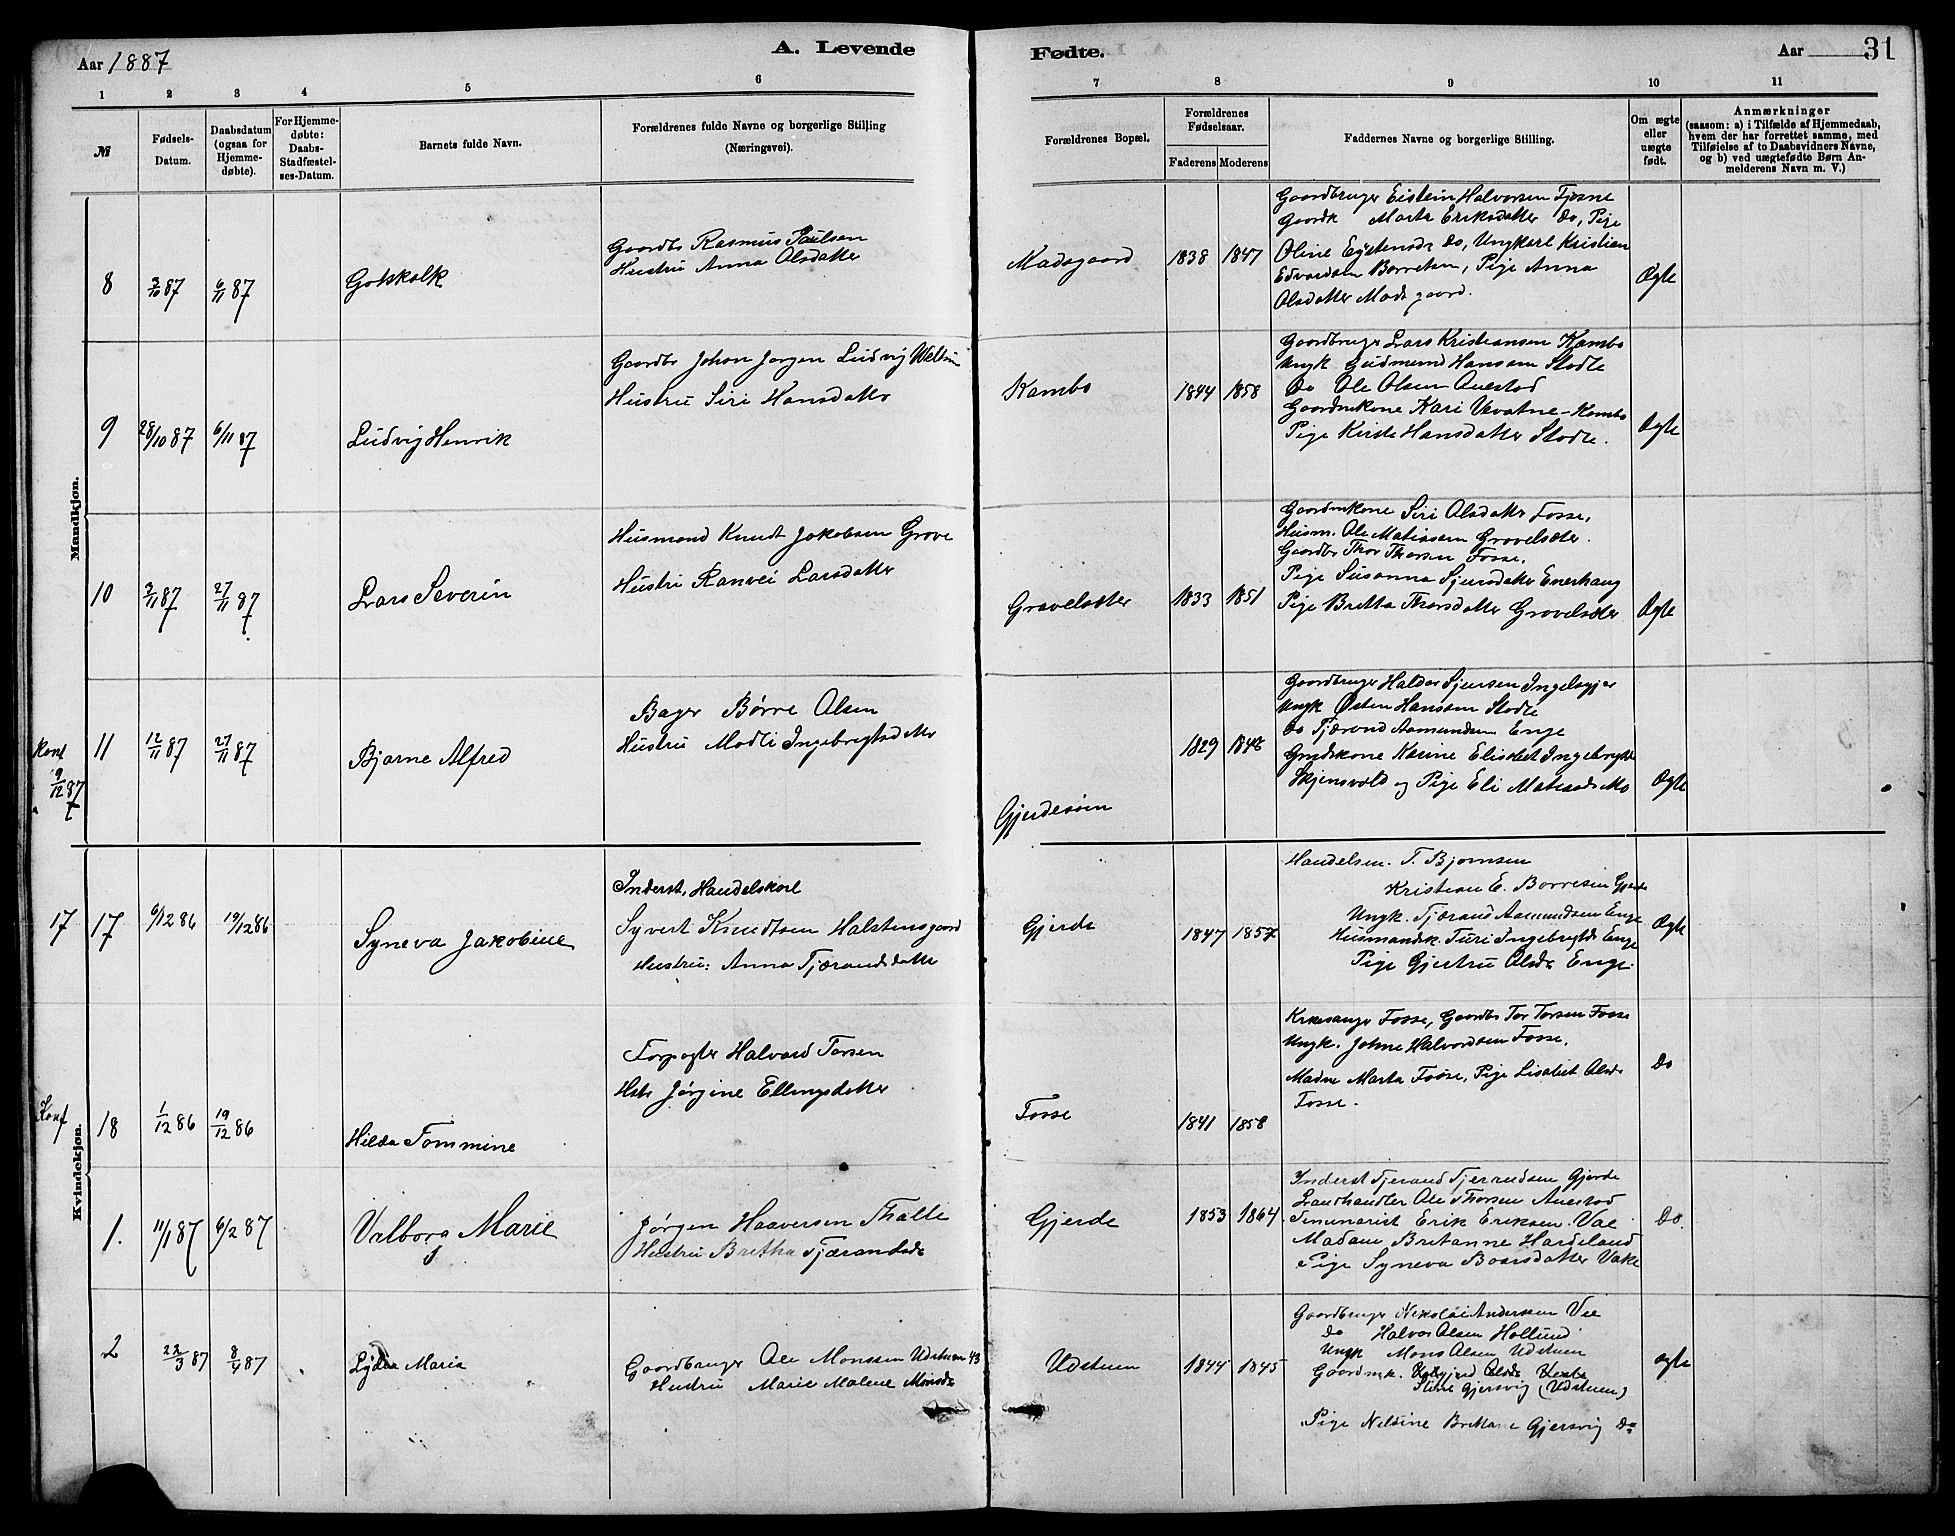 Aar 1887
A. Levende
Fødte.
Aar
31
1 2 3 4 5 6 7 8 9 10 11
№
Fødsels-Datum.
Daabsdatum (ogsaa for Hjemme-døbte).
For Hjemme-døbte: Daabs-Stadfæstel-ses-Datum.
Barnets fulde Navn.
Forældrenes fulde Navne og borgerlige Stilling
(Næringsvei).
Forældrenes Bopæl.
Forældrenes Fødselsaar.
Faderens Moderens
Faddernes Navne og borgerlige Stilling.
Om ægte eller uægte født.
Anmærkninger
(saasom: a) i Tilfælde af Hjemmedaab,
hvem der har forrettet samme, med
Tilføielse af to Daabsvidners Navne,
og b) ved uægtefødte Børn An-
melderens Navn m. V.)
Mandkjøn.
8 6/11 87
Gotskalk
Gaardbr Rasmus Paulsen
Hustru Anna Olsdatter
Madsgaard
1838 1847
Gaardbruger Eistein Halvorsen Tjosne
Gaardk Marta Eriksdatter Do, Pige
Oline Do, Ungkarl Kristian
Edvardsen Borretsen, Pige Anna
Olsdatter Madsgaard.
Ægte
9 28/10 87 6/11 87
Ludvig Henrik
Gaardbr Johan Jørgen Ludvig
Hustru Siri Hansdatter
Kambo
1844 1858
Gaardbruger Lars Kristiansen Kambo
Ungk Gudmund Hansen Stødle
Do Ole Olsen Auestad
Gaardmkone Kari Vevatne-Kambo
Pige Kirste Hansdatter Stødle.
Ægte
10 27/11 87
Lars Severin
Husmand Knudt Jakobsen Grove
Hustru Ranvei Larsdatter
Gravelsæter
1833 1851
Gaardmkone Siri Olsdatter Fosse,
Husm. Ole Matiasen Gravelsæter.
Gaardbr Thor Thorsen Fosse.
Pige Susanna Sjursdatter Enerhaug
Pige Britta Thorsdatter Gravelsæter
Ægte
Konf
9/12 87
11 12/11 87 27/11 87
Bjarne Alfred
Bager Børre Olsen
Hustru Modli Ingebrigtsdatter
Gjerdesøen
1829 1848
Gaardbruger Haldor Sjursen
Ungk Østen Hansen Stødle
Do Tjærand Aamundsen Enge
Karine Elisabet
og Pige Eli
Ægte
Kvindekjøn.
17 17 6/12 86 19/12 86
Syneva Jakobine
Inderst, Handelskarl
Syvert Knudtsen Halstensgaard
Hustru: Anna Tjærandsdatter
Gjerde
1847 1857
Handelsm. T. Bjørnsen
Kristian E. Børresen Gjerde
Ungk. Tjærand Aamundsen Enge
Husmandsk. Turi Ingebrigtsd. Enge
Pige Gjertru Olsd. Enge.
Ægte
Konf
18 1/12 86 19/12 86
Hilda Tommine
Forpagter Halvard Torsen
Hstr Jørgine Ellingsdatter
Fosse
1841 1858
Kirkesanger Fosse, Gaardbr Tor Torsen Fosse
Ungk. Johne Halvordsen Fosse,
Madme Marta Fosse, Pige Lisabet Olsd.
Fosse.
Do
1. 11/1 87 6/2 87
Valborg Marie
Jørgen Haaversen Thalle
Hustru Britha Tjærandsd.
Gjerde
1853 1864
Inderst Tjerand Tjerandsen Gjerde
Landhandler Ole Thorsen Auestad
Seminarist Erik Eriksen. Vae
Madam Britanne Hardeland
Pige Syneva Baarsdatter Vake
Do.
2 22/3 87 8/4 87
Lydia Maria
Gaardbruger Ole Monssen Udstuen 43
Hustru Marie Malene Monsd.
Udstuen
1844 1845
Gaardbruger Nikolai Andersen Vee
Do Halvor Olsen Hollund
Ungk Mons Olsen Udstuen
Gaardmk. Olsd.
Stine Gjersvig (Udstuen)
Pige Nelsine Gjersvig Do
Ægte